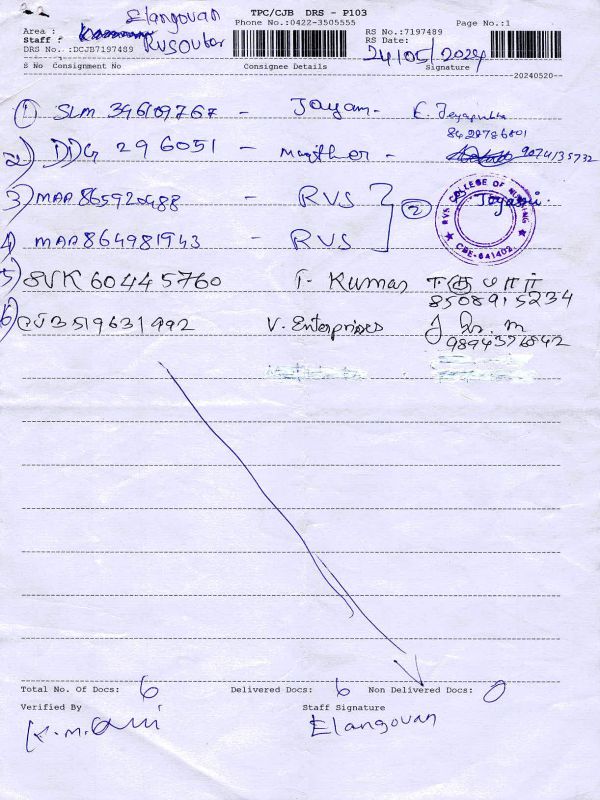 TPC/CJB DRS - P103
Elangovan
Phone No.:0422-3505555 Page No.:1
Area :
Staff :
RVS Outer
RS No.:7197489
RS Date: 24/05/2024
DRS No.:DCJB7197489
S No Consignment No Consignee Details Signature
20240520
1 SLM 346109767 - Jayam -
8428786801
2) DDG 296051 - - 9074135732
3) MAA 865920488 - RVS
2
RVS COLLEGE OF NURSING
CBE-641402
4) MAA 864981943 RVS
5) SVK 60445760 T. Kumar
8508915234
6) CJB 519631992 V. Enterprises
9894376842
Total No. Of Docs: 6 Delivered Docs: 6 Non Delivered Docs: 0
Verified By Staff Signature
Elangovan